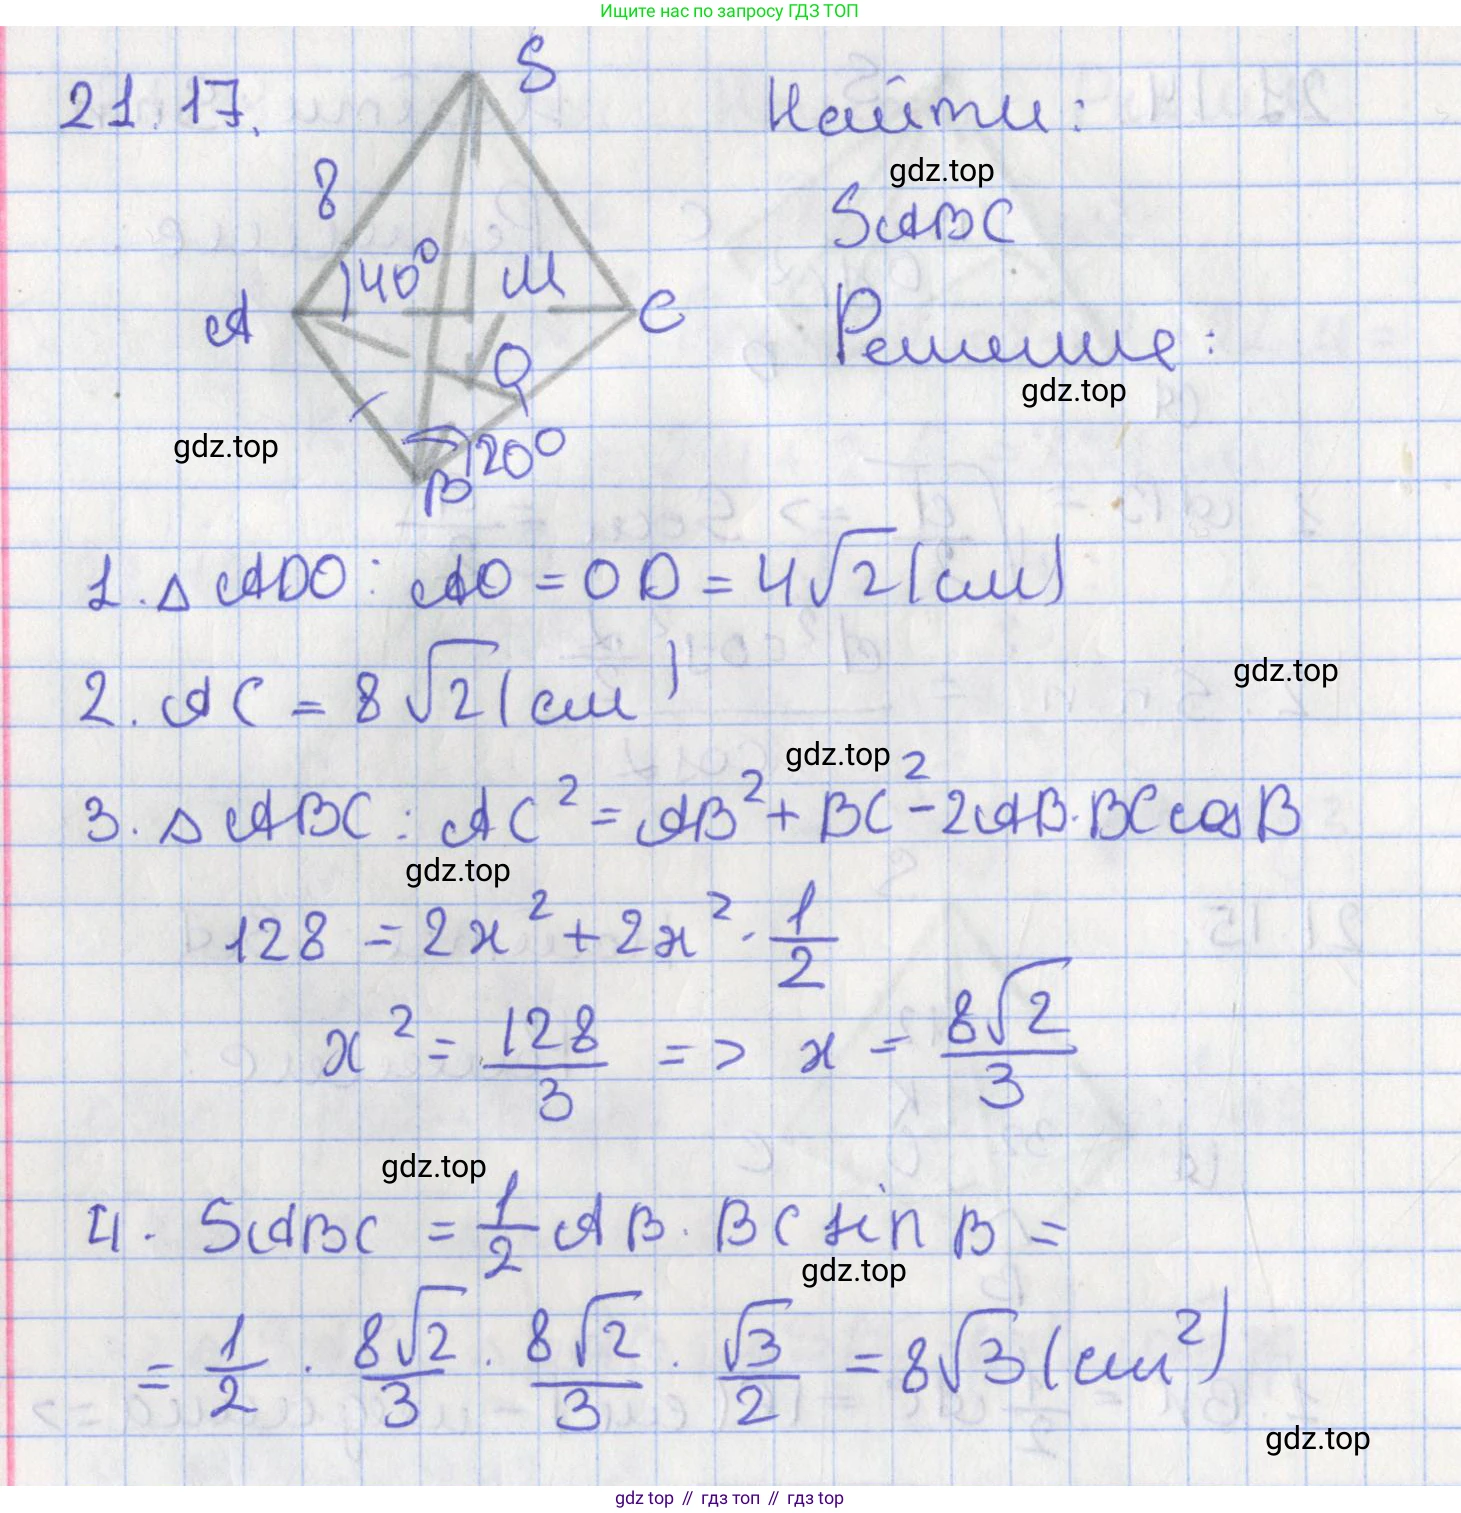 Ищите нас по запросу ГДЗ ТОП
21.17.
S
8
40°
M
A
C
O
B
120°
Найти:
gdz.top
SABC
Решение:
gdz.top
gdz.top
1. △ ADO: AO = OD = 4√2 (см)
gdz.top
2. AC = 8√2 (см)
gdz.top
3. △ ABC: AC² = AB² + BC² - 2AB·BC cos B
gdz.top
128 = 2x² + 2x² · 1/2
x² = 128/3 => x = 8√2/3
gdz.top
4. SABC = 1/2 AB · BC sin B =
gdz.top
= 1/2 · 8√2/3 · 8√2/3 · √3/2 = 8√3 (см²)
gdz.top
gdz top // гдз топ // gdz top